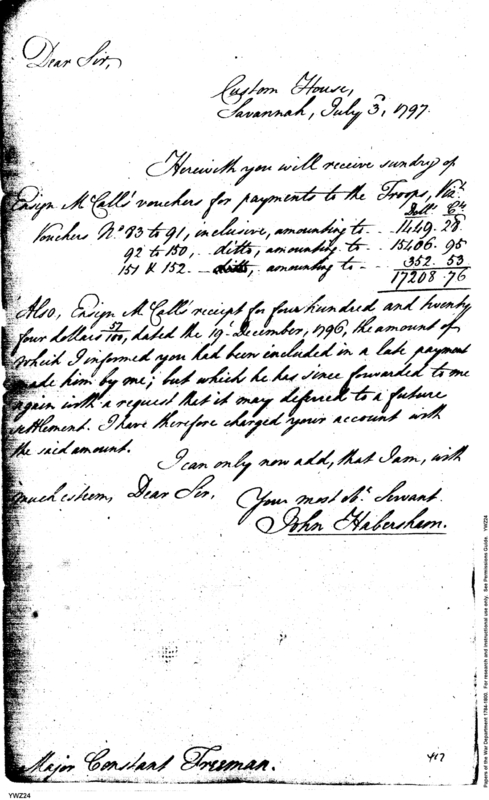 Dear Sir,
Custom House,
Savannah, July 3d, 1797.
Herewith you will receive sundry of
Ensign McCall's vouchers for payments to the Troops, Vizt.
Dolls. Cts.
Vouchers No. 83 to 91, inclusive, amounting to - - 1449. 28
92 to 150, ditto, amounting to - - 15406. 95
151 & 152 - ditto, amounting to - - 352. 53
17208. 76
Also, Ensign McCall's receipt for four hundred and twenty
four dollars 57/100, dated the 19t. December, 1796, the amount of
which I informed you had been included in a late payment
made him by me; but which he has since forwarded to me
again with a request that it may deferred to a future
settlement. I have therefore charged your account with
the said amount.
I can only now add, that I am, with
much esteem, Dear Sir,
Your most Ob. Servant
John Habersham.
Major Constant Freeman.
417
YWZ24
Papers of the War Department 1784-1800. For research and instructional use only. See Permissions Guide. YWZ24